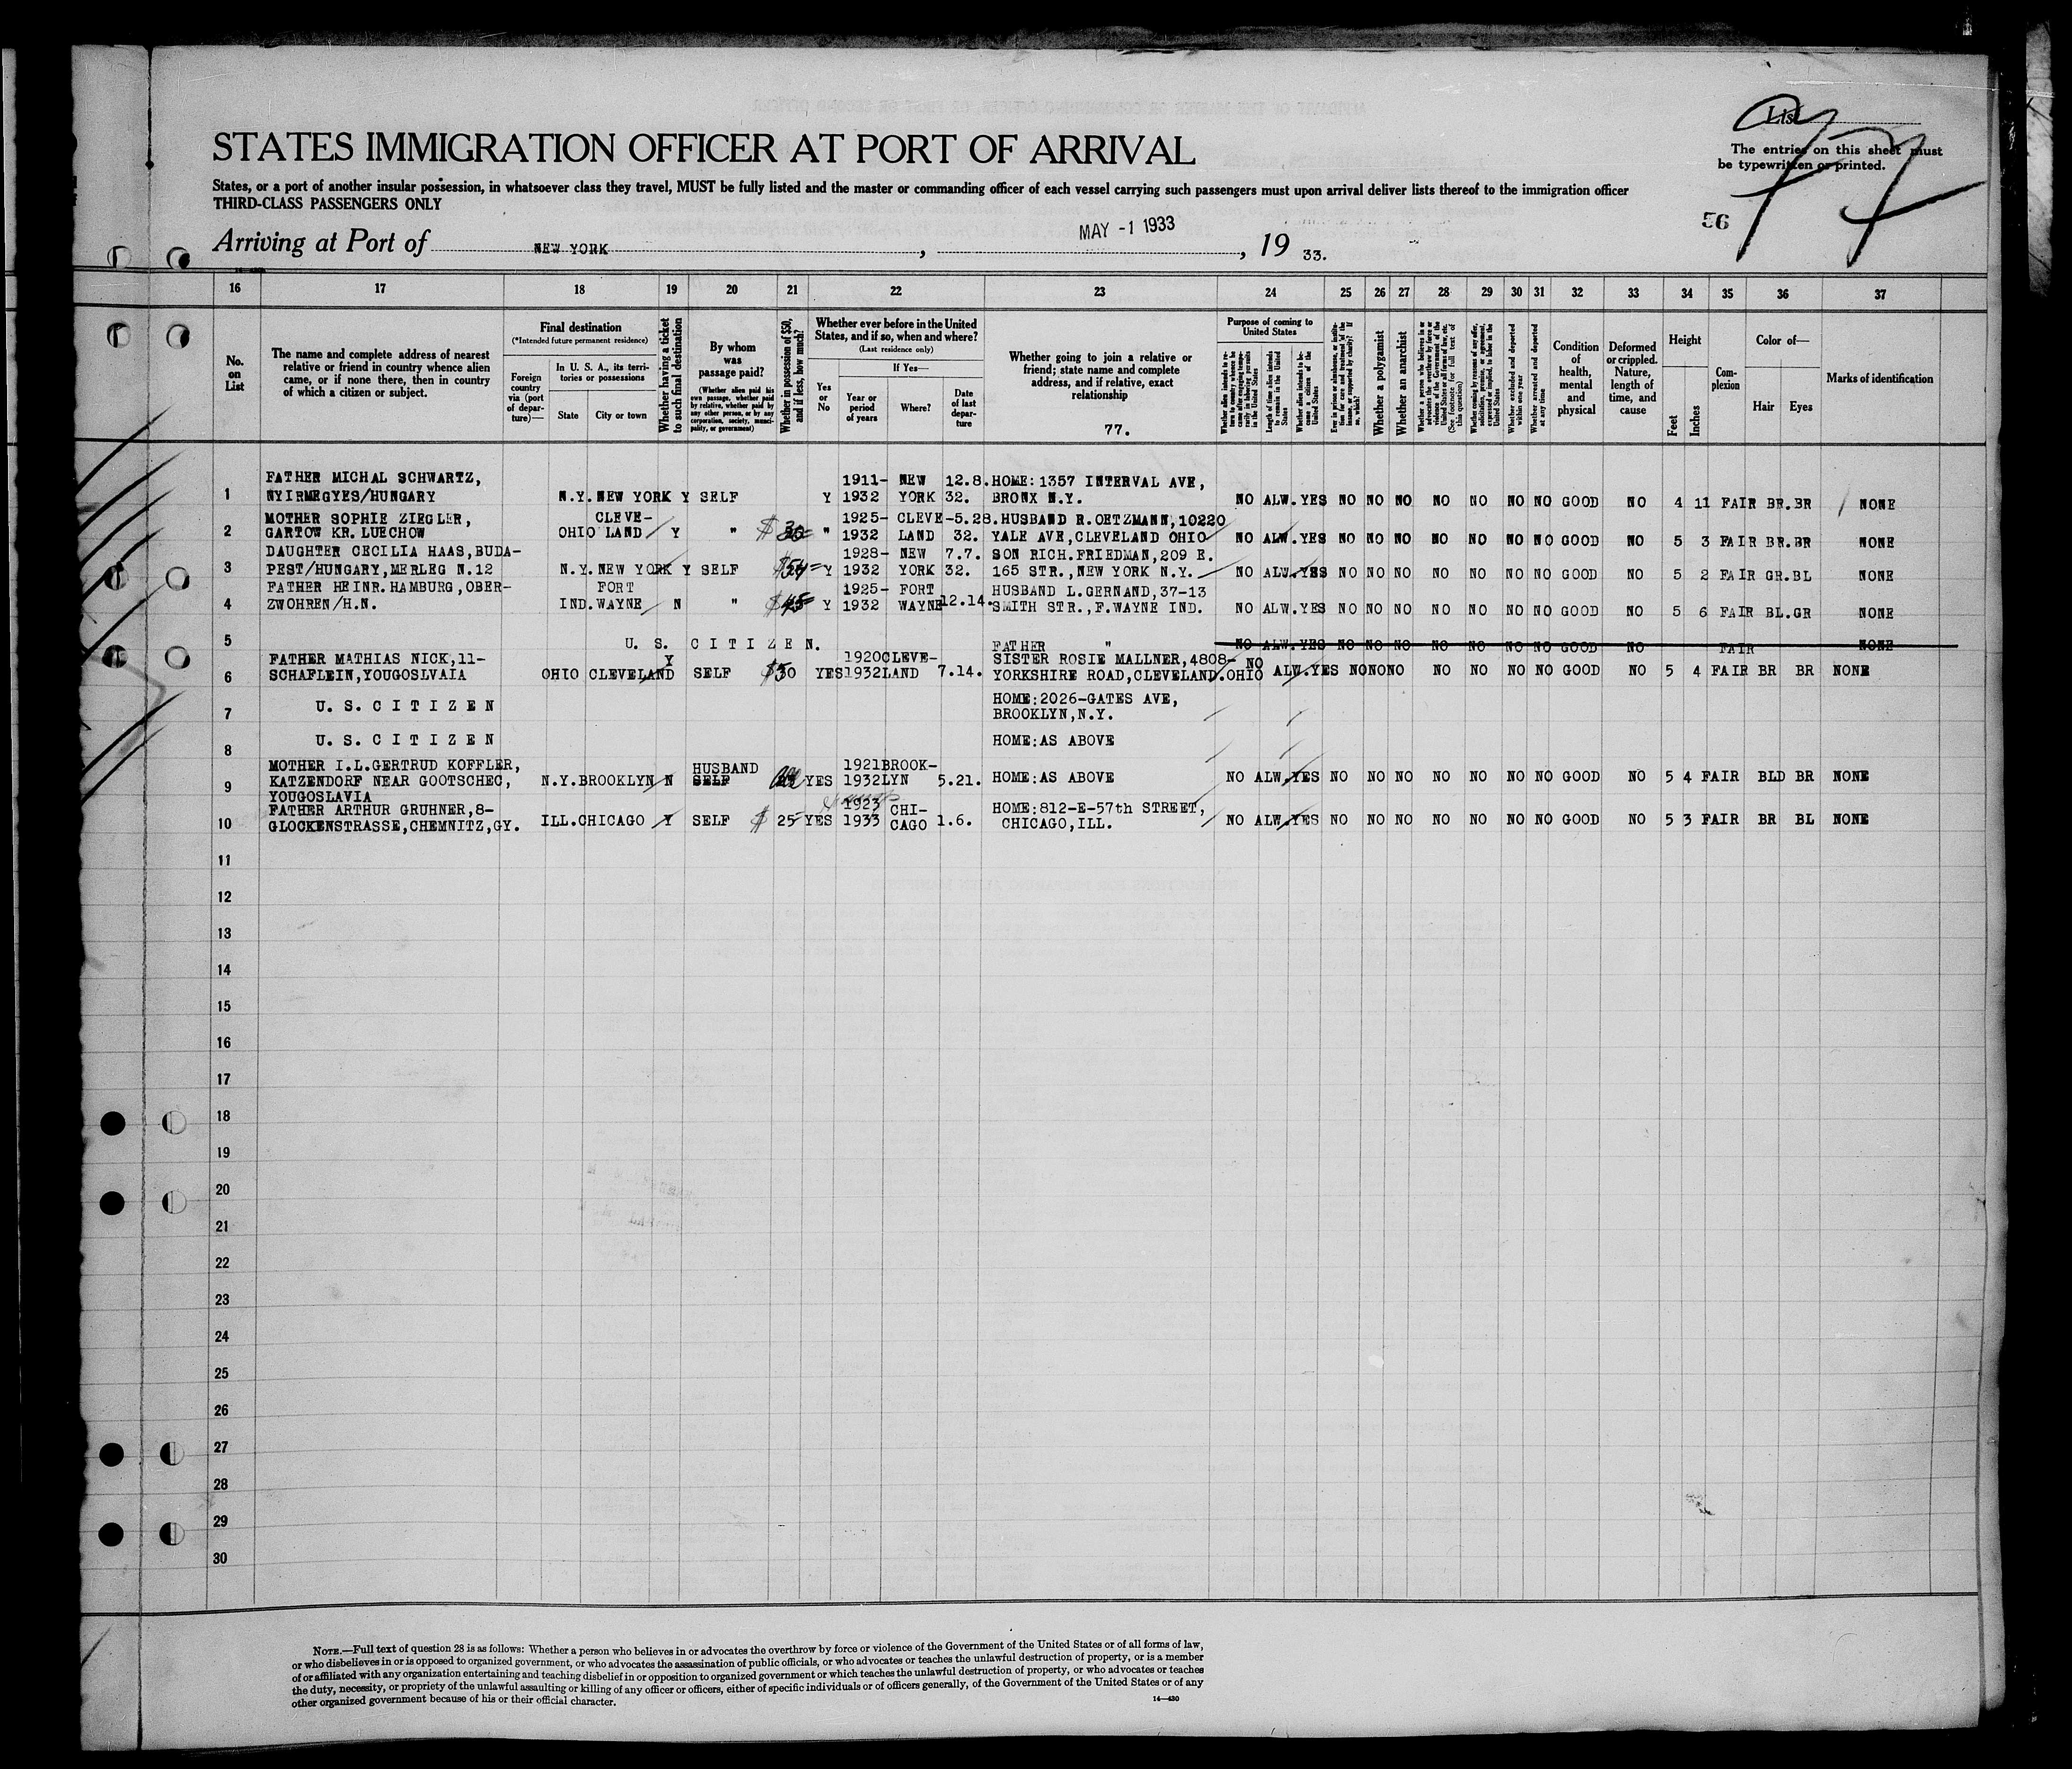 List
77
The entries on this sheet must
be typewritten or printed.
56
STATES IMMIGRATION OFFICER AT PORT OF ARRIVAL
States, or a port of another insular possession, in whatsoever class they travel, MUST be fully listed and the master or commanding officer of each vessel carrying such passengers must upon arrival deliver lists thereof to the immigration officer
THIRD-CLASS PASSENGERS ONLY
Arriving at Port of NEW YORK, MAY -1 1933, 19 33.
16 17 18 19 20 21 22 23 24 25 26 27 28 29 30 31 32 33 34 35 36 37
No. on List
The name and complete address of nearest
relative or friend in country whence alien
came, or if none there, then in country
of which a citizen or subject.
Final destination
(*Intended future permanent residence)
Foreign country via (port of departure)—
In U. S. A., its territories or possessions
State City or town
Whether having a ticket to such final destination
By whom was passage paid?
(Whether alien paid his own passage, whether paid by relative, whether paid by any other person, or by any corporation, society, municipality, or government)
Whether in possession of $50, and if less, how much?
Whether ever before in the United
States, and if so, when and where?
(Last residence only)
Yes or No
If Yes—
Year or period of years
Where?
Date of last departure
Whether going to join a relative or
friend; state name and complete
address, and if relative, exact
relationship
77.
Purpose of coming to United States
Length of time alien intends to remain in the United States
Whether alien intends to become a citizen of the United States
Whether a polygamist
Whether an anarchist
Whether excluded and deported within one year
Whether arrested and deported at any time
Condition of health, mental and physical
Deformed or crippled. Nature, length of time, and cause
Height
Feet Inches
Complexion
Color of—
Hair Eyes
Marks of identification
FATHER MICHAL SCHWARTZ, 1911- NEW 12.8. HOME: 1357 INTERVAL AVE,
1 NYIRMEGYES/HUNGARY N.Y. NEW YORK Y SELF Y 1932 YORK 32. BRONX N.Y. NO ALW. YES NO NO NO NO NO NO NO GOOD NO 4 11 FAIR BR. BR NONE
MOTHER SOPHIE ZIEGLER, CLEVE- 1925- CLEVE- 5.28. HUSBAND R.OETZMANN, 10220
2 GARTOW KR. LUECHOW OHIO LAND Y " $30 " 1932 LAND 32. YALE AVE, CLEVELAND OHIO NO ALW. YES NO NO NO NO NO NO NO GOOD NO 5 3 FAIR BR. BR NONE
DAUGHTER CECILIA HAAS, BUDA- 1928- NEW 7.7. SON RICH. FRIEDMAN, 209 E.
3 PEST/HUNGARY, MERLEG N.12 N.Y. NEW YORK Y SELF $54 Y 1932 YORK 32. 165 STR., NEW YORK N.Y. NO ALW. YES NO NO NO NO NO NO NO GOOD NO 5 2 FAIR GR. BL NONE
FATHER HEINR. HAMBURG, OBER- FORT 1925- FORT HUSBAND L. GERNAND, 37-13
4 ZWOHREN/H.N. IND. WAYNE N " $45 Y 1932 WAYNE 12.14. SMITH STR., F. WAYNE IND. NO ALW. YES NO NO NO NO NO NO NO GOOD NO 5 6 FAIR BL. GR NONE
5 U. S. C I T I Z E N. FATHER " NO ALW. YES NO NO NO NO NO NO NO GOOD NO FAIR NONE
FATHER MATHIAS NICK, 11- Y 1920 CLEVE- SISTER ROSIE MALLNER, 4808-
6 SCHAFLEIN, YOUGOSLVAIA OHIO CLEVELAND SELF $30 YES 1932 LAND 7.14. YORKSHIRE ROAD, CLEVELAND. OHIO NO ALW. YES NO NO NO NO NO NO NO GOOD NO 5 4 FAIR BR BR NONE
7 U. S. C I T I Z E N HOME: 2026-GATES AVE,
BROOKLYN, N.Y.
8 U. S. C I T I Z E N HOME: AS ABOVE
MOTHER I.L. GERTRUD KOFFLER, HUSBAND 1921 BROOK-
9 KATZENDORF NEAR GOOTSCHEC, N.Y. BROOKLYN N SELF YES 1932 LYN 5.21. HOME: AS ABOVE NO ALW. YES NO NO NO NO NO NO NO GOOD NO 5 4 FAIR BLD BR NONE
YOUGOSLAVIA
FATHER ARTHUR GRUHNER, 8- 1923 CHI- HOME: 812-E-57th STREET,
10 GLOCKENSTRASSE, CHEMNITZ, GY. ILL. CHICAGO Y SELF $25 YES 1933 CAGO 1.6. CHICAGO, ILL. NO ALW. YES NO NO NO NO NO NO NO GOOD NO 5 3 FAIR BR BL NONE
11
12
13
14
15
16
17
18
19
20
21
22
23
24
25
26
27
28
29
30
NOTE.—Full text of question 28 is as follows: Whether a person who believes in or advocates the overthrow by force or violence of the Government of the United States or of all forms of law,
or who disbelieves in or is opposed to organized government, or who advocates the assassination of public officials, or who advocates or teaches the unlawful destruction of property, or is a member
of or affiliated with any organization entertaining and teaching disbelief in or opposition to organized government or which teaches the unlawful destruction of property, or who advocates or teaches
the duty, necessity, or propriety of the unlawful assaulting or killing of any officer or officers, either of specific individuals or of officers generally, of the Government of the United States or of any
other organized government because of his or their official character.
14—430